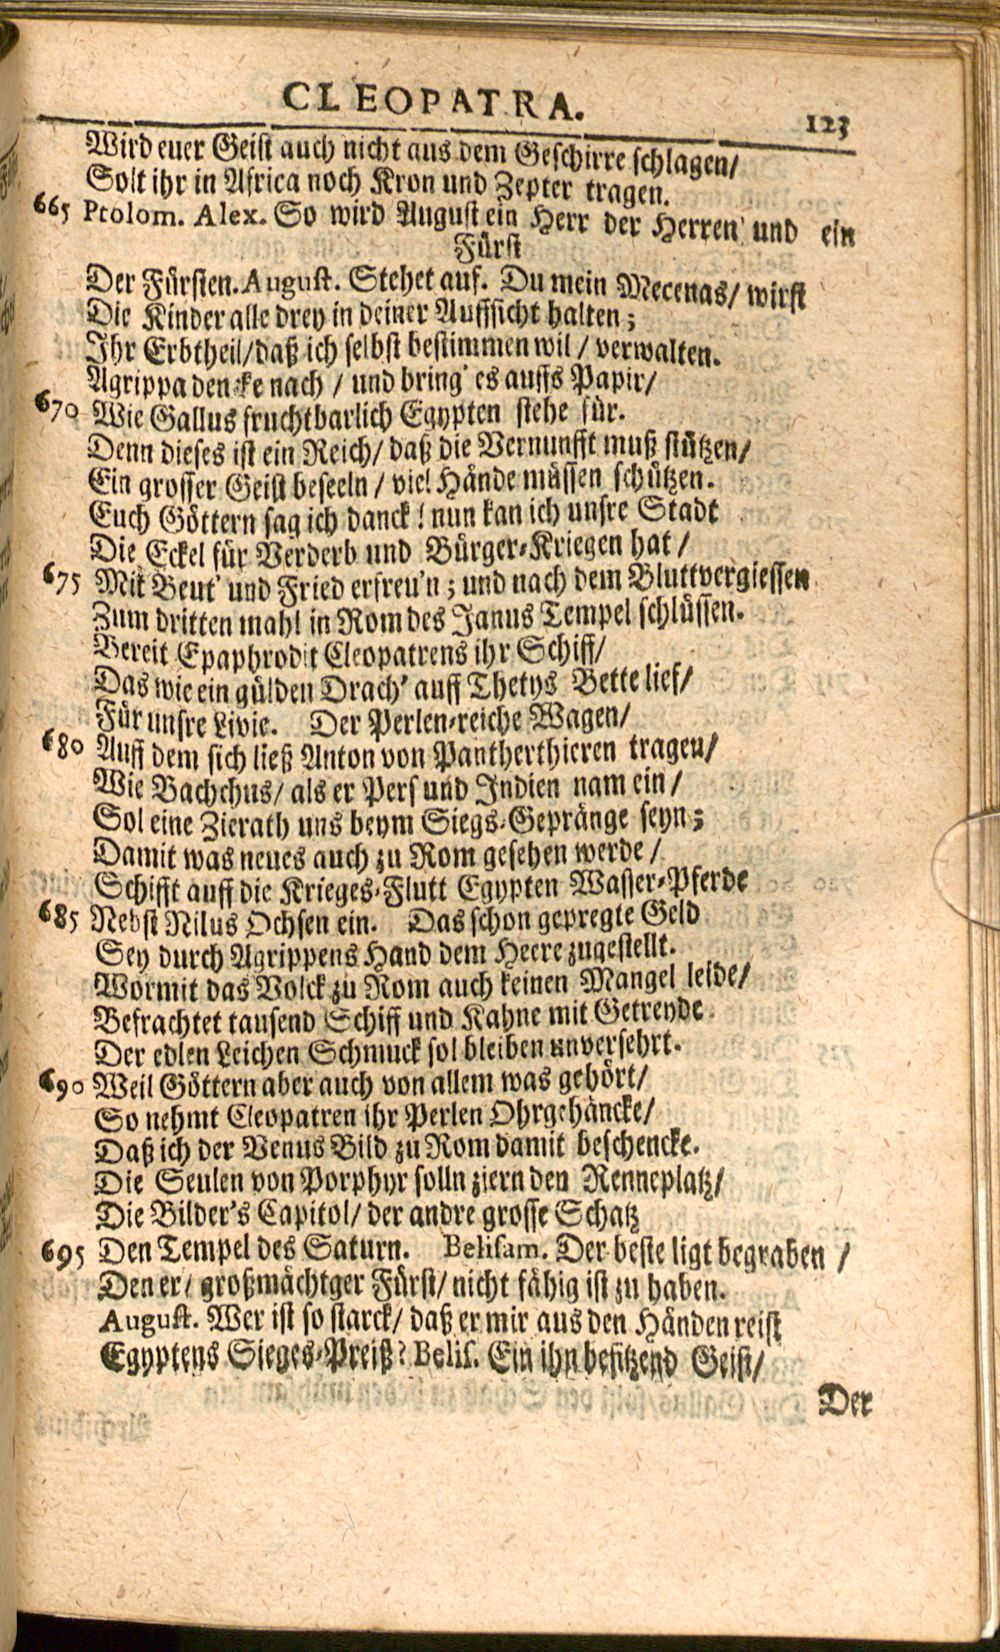 CLEOPATRA.
123
Wird euer Geist auch nicht aus dem Geschirre schlagen/
Solt ihr in Africa noch Kron und Zepter tragen.
665 Ptolom. Alex. So wird August ein Herr der Herren und ein
Fürst
Der Fürsten. August. Stehet auf. Du mein Mecenas/ wirst
Die Kinder alle drey in deiner Auffsicht halten;
Ihr Erbtheil/daß ich selbst bestimmen wil / verwalten.
Agrippa dencke nach / und bring' es auffs Papir/
670 Wie Gallus fruchtbarlich Egypten stehe für.
Denn dieses ist ein Reich/ daß die Vernunfft muß stützen/
Ein grosser Geist beseeln / viel Hände müssen schützen.
Euch Göttern sag ich danck! nun kan ich unsre Stadt
Die Eckel für Verderb und Bürger-Kriegen hat /
675 Mit Beut' und Fried erfreu'n; und nach dem Bluttvergiessen
Zum dritten mahl in Rom des Janus Tempel schlüssen.
Bereit Epaphrodit Cleopatrens ihr Schiff/
Das wie ein gülden Drach' auff Thetys Bette lief/
Für unsre Livie. Der Perlen-reiche Wagen/
680 Auff dem sich ließ Anton von Pantherthieren tragen/
Wie Bachchus/ als er Pers und Indien nam ein /
Sol eine Zierath uns beym Siegs-Gepränge seyn;
Damit was neues auch zu Rom gesehen werde /
Schifft auff die Krieges-Flutt Egypten Wasser-Pferde
685 Nebst Nilus Ochsen ein. Das schon gepregte Geld
Sey durch Agrippens Hand dem Heere zugestellt.
Wormit das Volck zu Rom auch keinen Mangel leide/
Befrachtet tausend Schiff und Kahne mit Getreyde.
Der edlen Leichen Schmuck sol bleiben unversehrt.
690 Weil Göttern aber auch von allem was gehört/
So nehmt Cleopatren ihr Perlen Ohrgehäncke/
Daß ich der Venus Bild zu Rom damit beschencke.
Die Seulen von Porphyr solln ziern den Renneplatz/
Die Bilder's Capitol/ der andre grosse Schatz
695 Den Tempel des Saturn. Belisam. Der beste ligt begraben /
Den er/ großmächtger Fürst/ nicht fähig ist zu haben.
August. Wer ist so starck/ daß er mir aus den Händen reist
Egyptens Sieges-Preiß? Belis. Ein ihn besitzend Geist/
Der